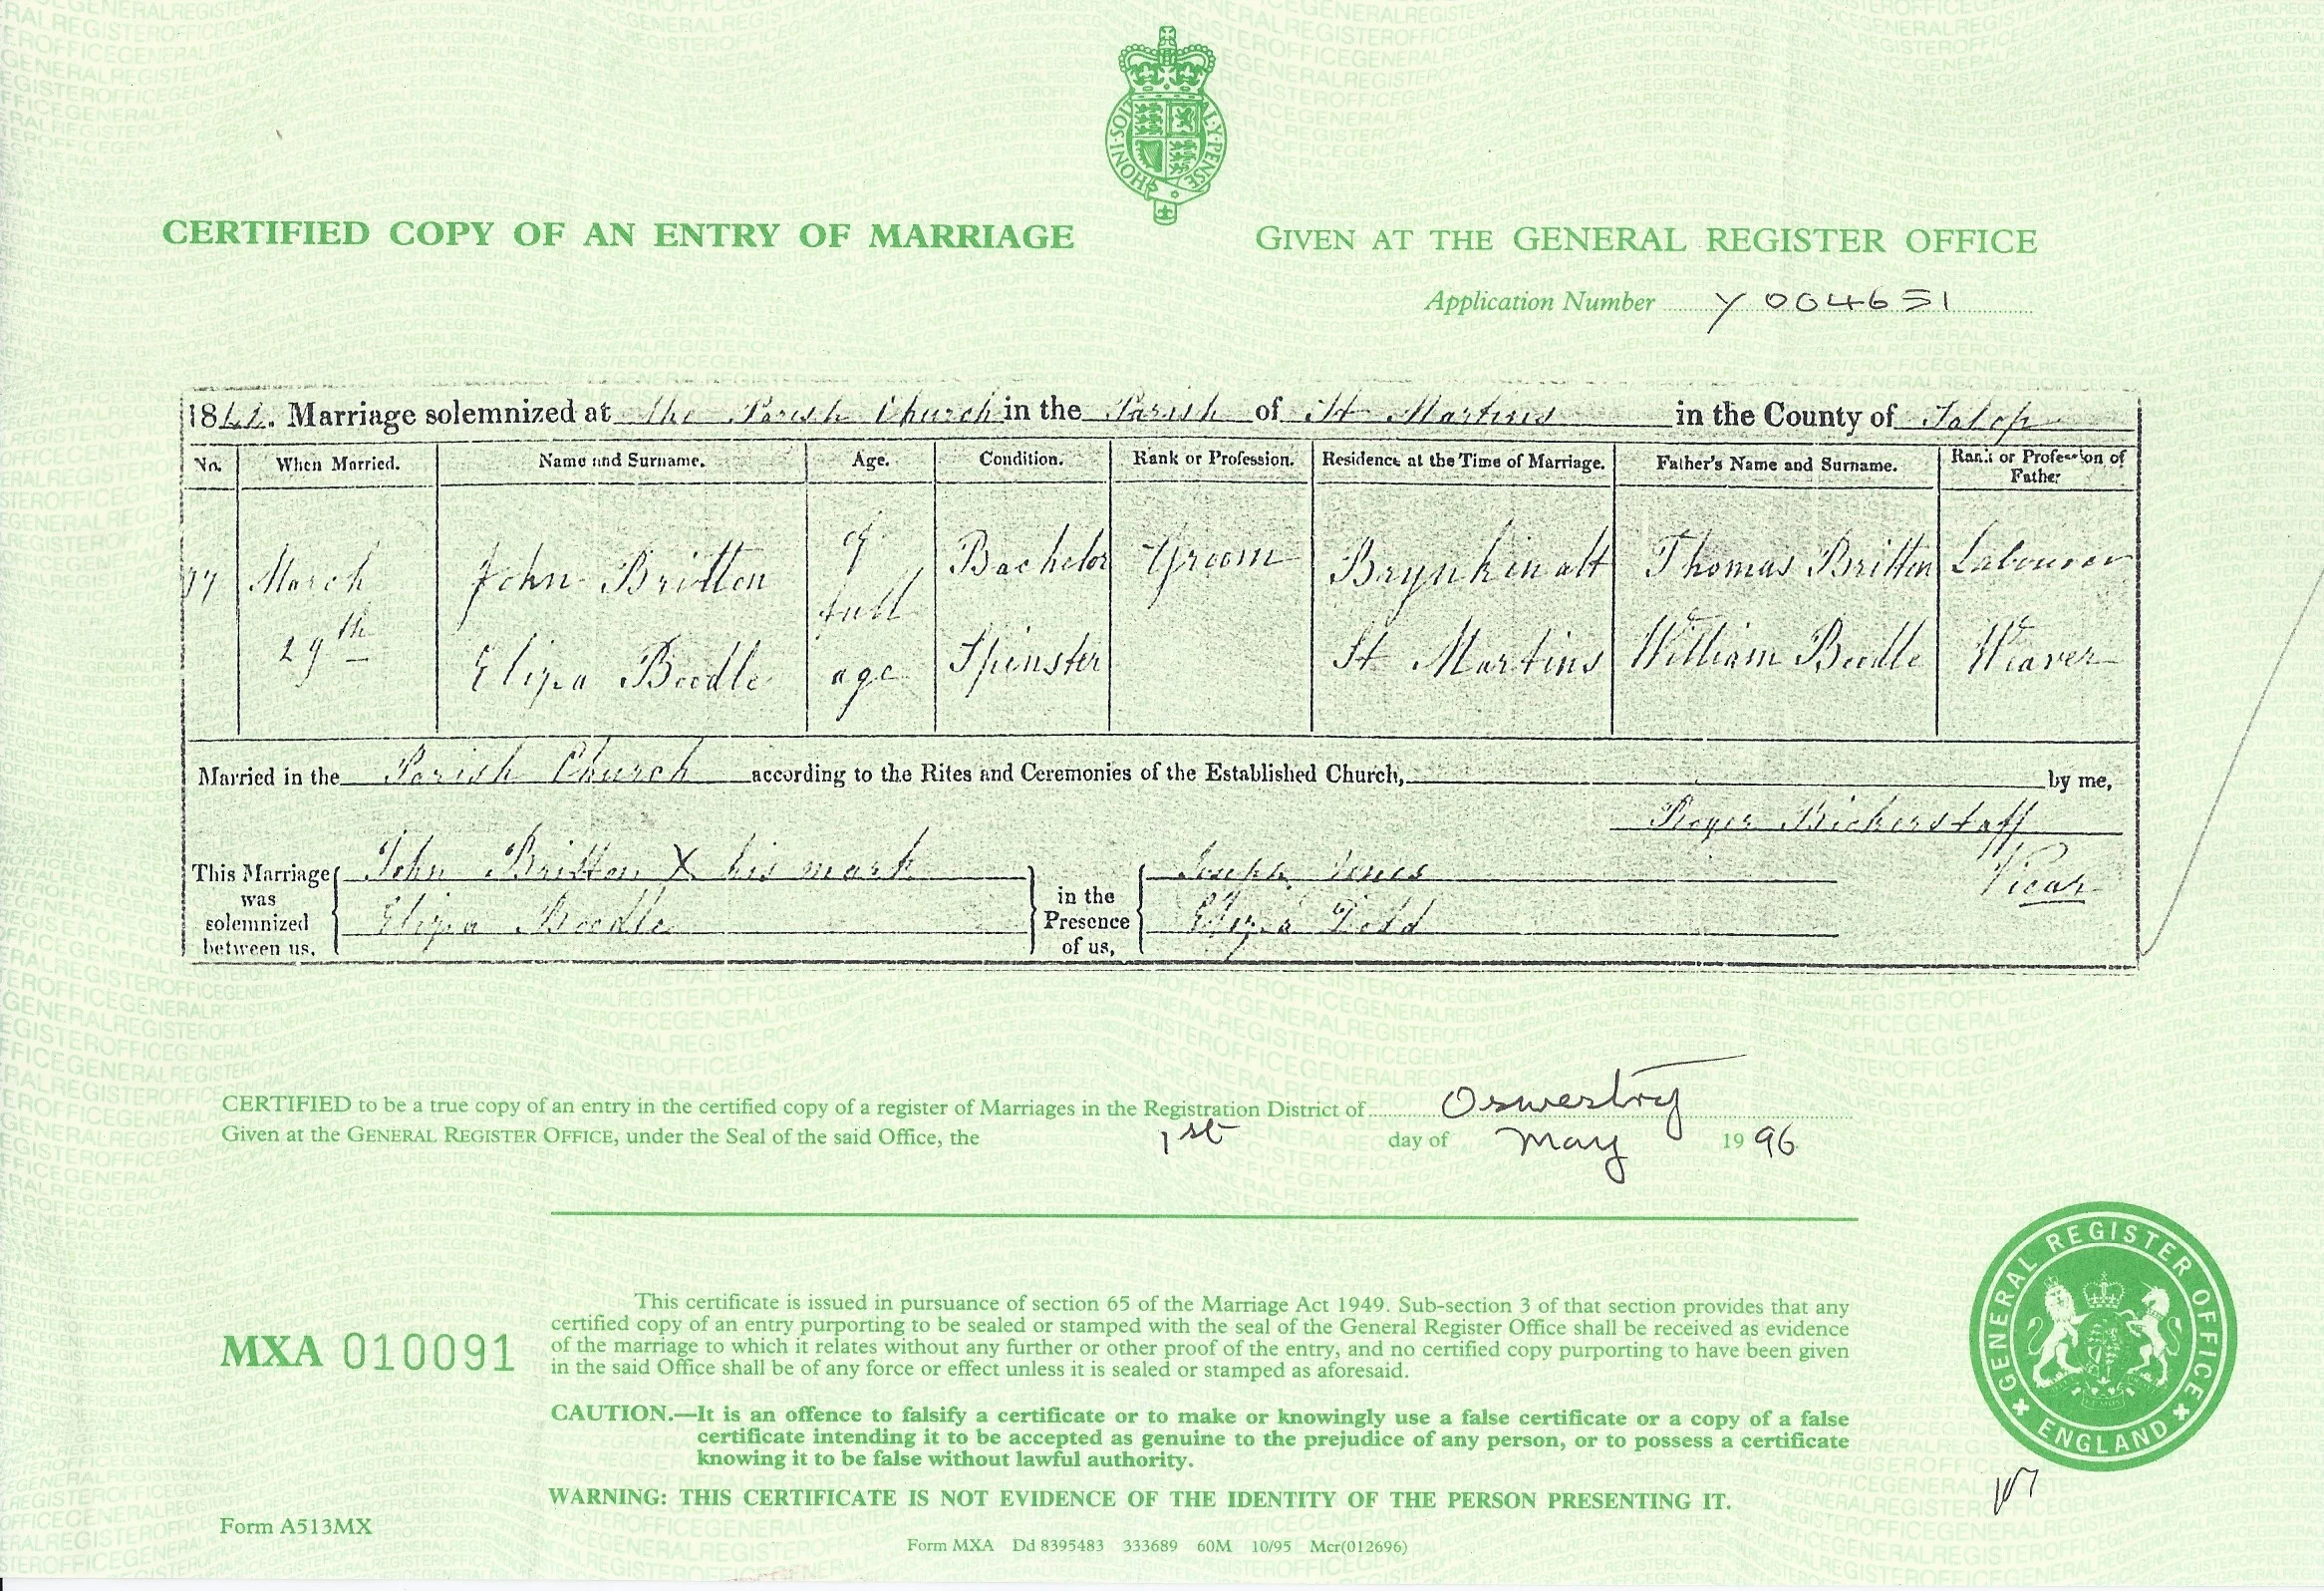 HONI·SOIT
Y·PENSE
CERTIFIED COPY OF AN ENTRY OF MARRIAGE
GIVEN AT THE GENERAL REGISTER OFFICE
Application Number Y 004651
18 . Marriage solemnized at the Parish Church in the Parish of St Martins in the County of Salop
No. When Married. Name and Surname. Age. Condition. Rank or Profession. Residence at the Time of Marriage. Father's Name and Surname. Rank or Profession of Father
March John Britton of Bachelor Groom Brynkinalt Thomas Britton Labourer
full
29th Eliza Beedle age Spinster St Martins William Beedle Weaver
Married in the Parish Church according to the Rites and Ceremonies of the Established Church, by me,
Roger Bickerstaff
Vicar
This Marriage was solemnized between us, John Britton X his mark in the Presence of us, Joseph Jones
Eliza Beedle Eliza Dodd
CERTIFIED to be a true copy of an entry in the certified copy of a register of Marriages in the Registration District of Oswestry
Given at the GENERAL REGISTER OFFICE, under the Seal of the said Office, the 1st day of May 1996
MXA 010091
This certificate is issued in pursuance of section 65 of the Marriage Act 1949. Sub-section 3 of that section provides that any
certified copy of an entry purporting to be sealed or stamped with the seal of the General Register Office shall be received as evidence
of the marriage to which it relates without any further or other proof of the entry, and no certified copy purporting to have been given
in the said Office shall be of any force or effect unless it is sealed or stamped as aforesaid.
CAUTION.—It is an offence to falsify a certificate or to make or knowingly use a false certificate or a copy of a false
certificate intending it to be accepted as genuine to the prejudice of any person, or to possess a certificate
knowing it to be false without lawful authority.
WARNING: THIS CERTIFICATE IS NOT EVIDENCE OF THE IDENTITY OF THE PERSON PRESENTING IT.
GENERAL REGISTER OFFICE
ENGLAND
Form A513MX
Form MXA Dd 8395483 333689 60M 10/95 Mcr(012696)